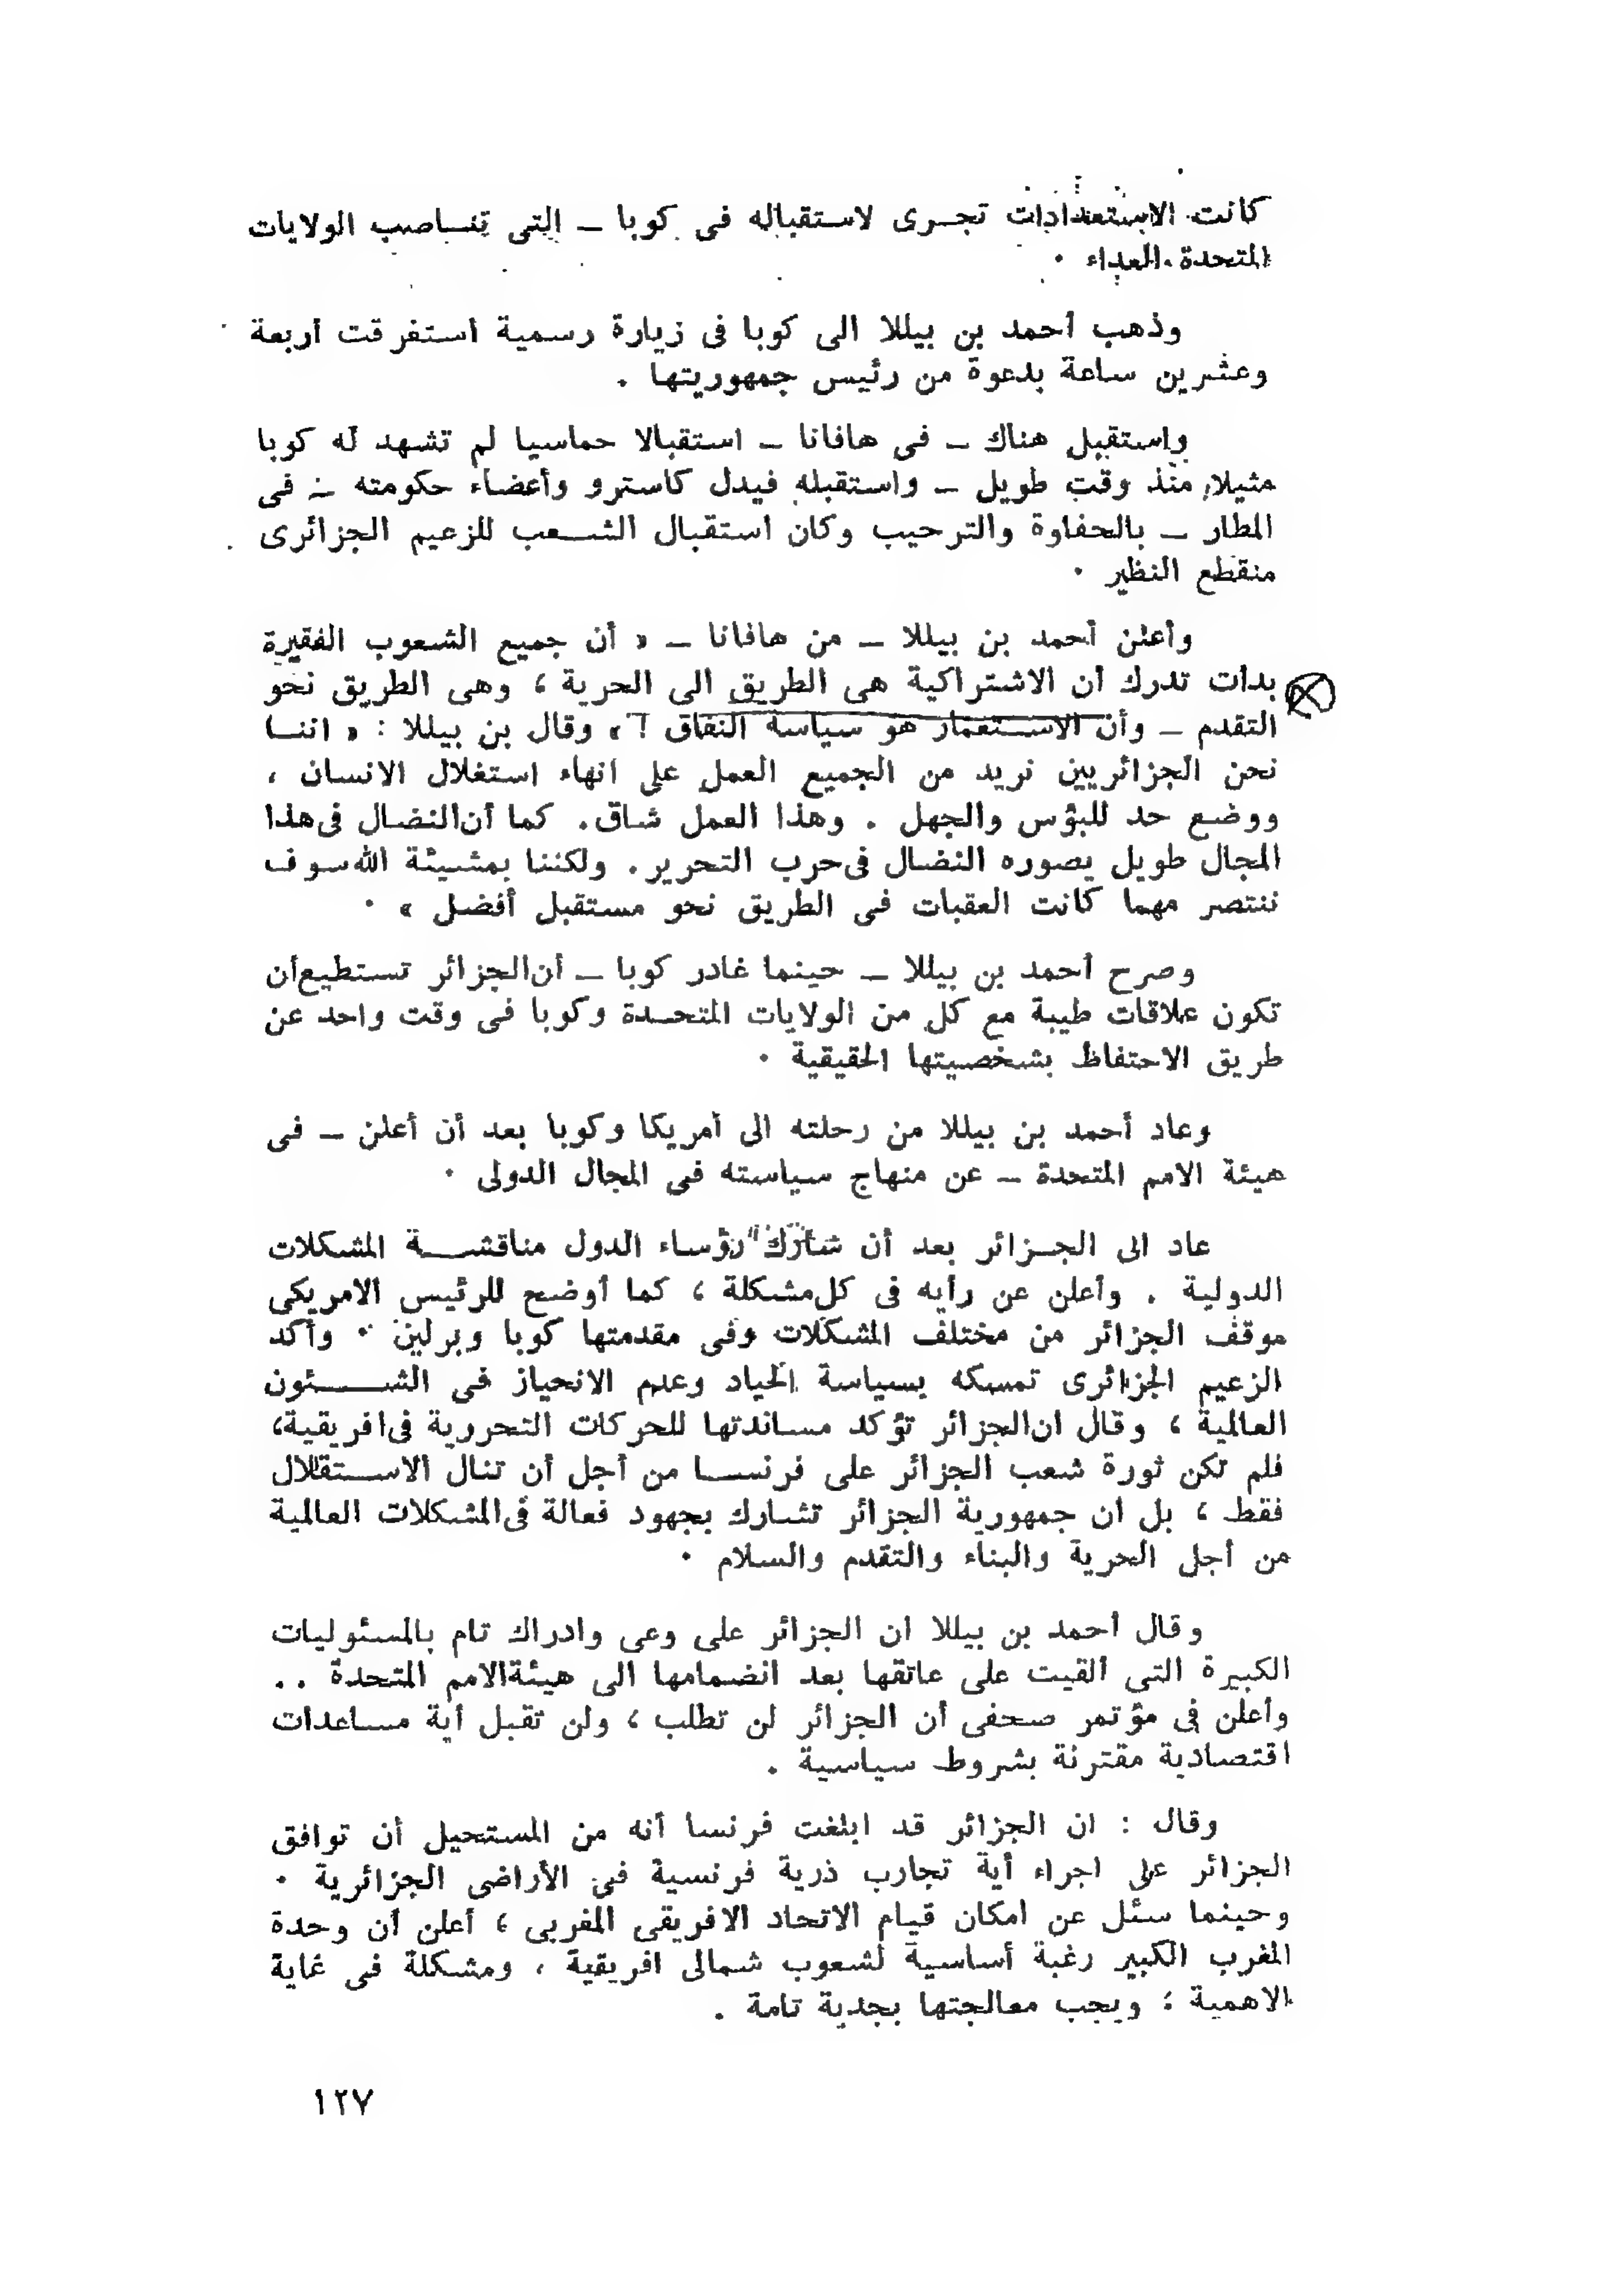 كانت الاستعدادات تجرى لاستقباله فى كوبا ـ التى تناصب الولايات
المتحدة العداء ٠
وذهب أحمد بن بيللا الى كوبا فى زيارة رسمية استغرقت أربعة
وعشرين ساعة بدعوة من رئيس جمهوريتها .
واستقبل هناك ـ فى هافانا ـ استقبالا حماسيا لم تشهد له كوبا
مثيلا منذ وقت طويل ـ واستقبله فيدل كاسترو وأعضاء حكومته ـ فى
المطار ـ بالحفاوة والترحيب وكان استقبال الشعب للزعيم الجزائرى
منقطع النظير ٠
وأعلن أحمد بن بيللا ـ من هافانا ـ « أن جميع الشعوب الفقيرة
بدأت تدرك أن الاشتراكية هى الطريق الى الحرية ، وهى الطريق نحو
التقدم ـ وأن الاستعمار هو سياسة النفاق ! » وقال بن بيللا : « اننا
نحن الجزائريين نريد من الجميع العمل على انهاء استغلال الانسان ،
ووضع حد للبؤس والجهل . وهذا العمل شاق. كما أن النضال فى هذا
المجال طويل بصوره النضال فى حرب التحرير. ولكننا بمشيئة الله سوف
ننتصر مهما كانت العقبات فى الطريق نحو مستقبل أفضل » ٠
وصرح أحمد بن بيللا ـ حينما غادر كوبا ـ أن الجزائر تستطيع أن
تكون علاقات طيبة مع كل من الولايات المتحدة وكوبا فى وقت واحد عن
طريق الاحتفاظ بشخصيتها الحقيقية ٠
وعاد أحمد بن بيللا من رحلته الى أمريكا وكوبا بعد أن أعلن ـ فى
هيئة الامم المتحدة ـ عن منهاج سياسته فى المجال الدولى ٠
عاد الى الجزائر بعد أن شارك رؤساء الدول مناقشة المشكلات
الدولية . وأعلن عن رأيه فى كل مشكلة ، كما أوضح للرئيس الامريكى
موقف الجزائر من مختلف المشكلات وفى مقدمتها كوبا وبرلين ٠ وأكد
الزعيم الجزائرى تمسكه بسياسة الحياد وعدم الانحياز فى الشئون
العالمية ، وقال ان الجزائر تؤكد مساندتها للحركات التحررية فى افريقية،
فلم تكن ثورة شعب الجزائر على فرنسا من أجل أن تنال الاستقلال
فقط ، بل ان جمهورية الجزائر تشارك بجهود فعالة فى المشكلات العالمية
من أجل الحرية والبناء والتقدم والسلام ٠
وقال أحمد بن بيللا ان الجزائر على وعى وادراك تام بالمسئوليات
الكبيرة التى ألقيت على عاتقها بعد انضمامها الى هيئة الامم المتحدة ..
وأعلن فى مؤتمر صحفى أن الجزائر لن تطلب ، ولن تقبل أية مساعدات
اقتصادية مقترنة بشروط سياسية .
وقال : ان الجزائر قد ابلغت فرنسا أنه من المستحيل أن توافق
الجزائر على اجراء أية تجارب ذرية فرنسية فى الأراضى الجزائرية ٠
وحينما سئل عن امكان قيام الاتحاد الافريقى المغربى ، أعلن أن وحدة
المغرب الكبير رغبة أساسية لشعوب شمالى افريقية ، ومشكلة فى غاية
الاهمية ؛ ويجب معالجتها بجدية تامة .
١٢٧